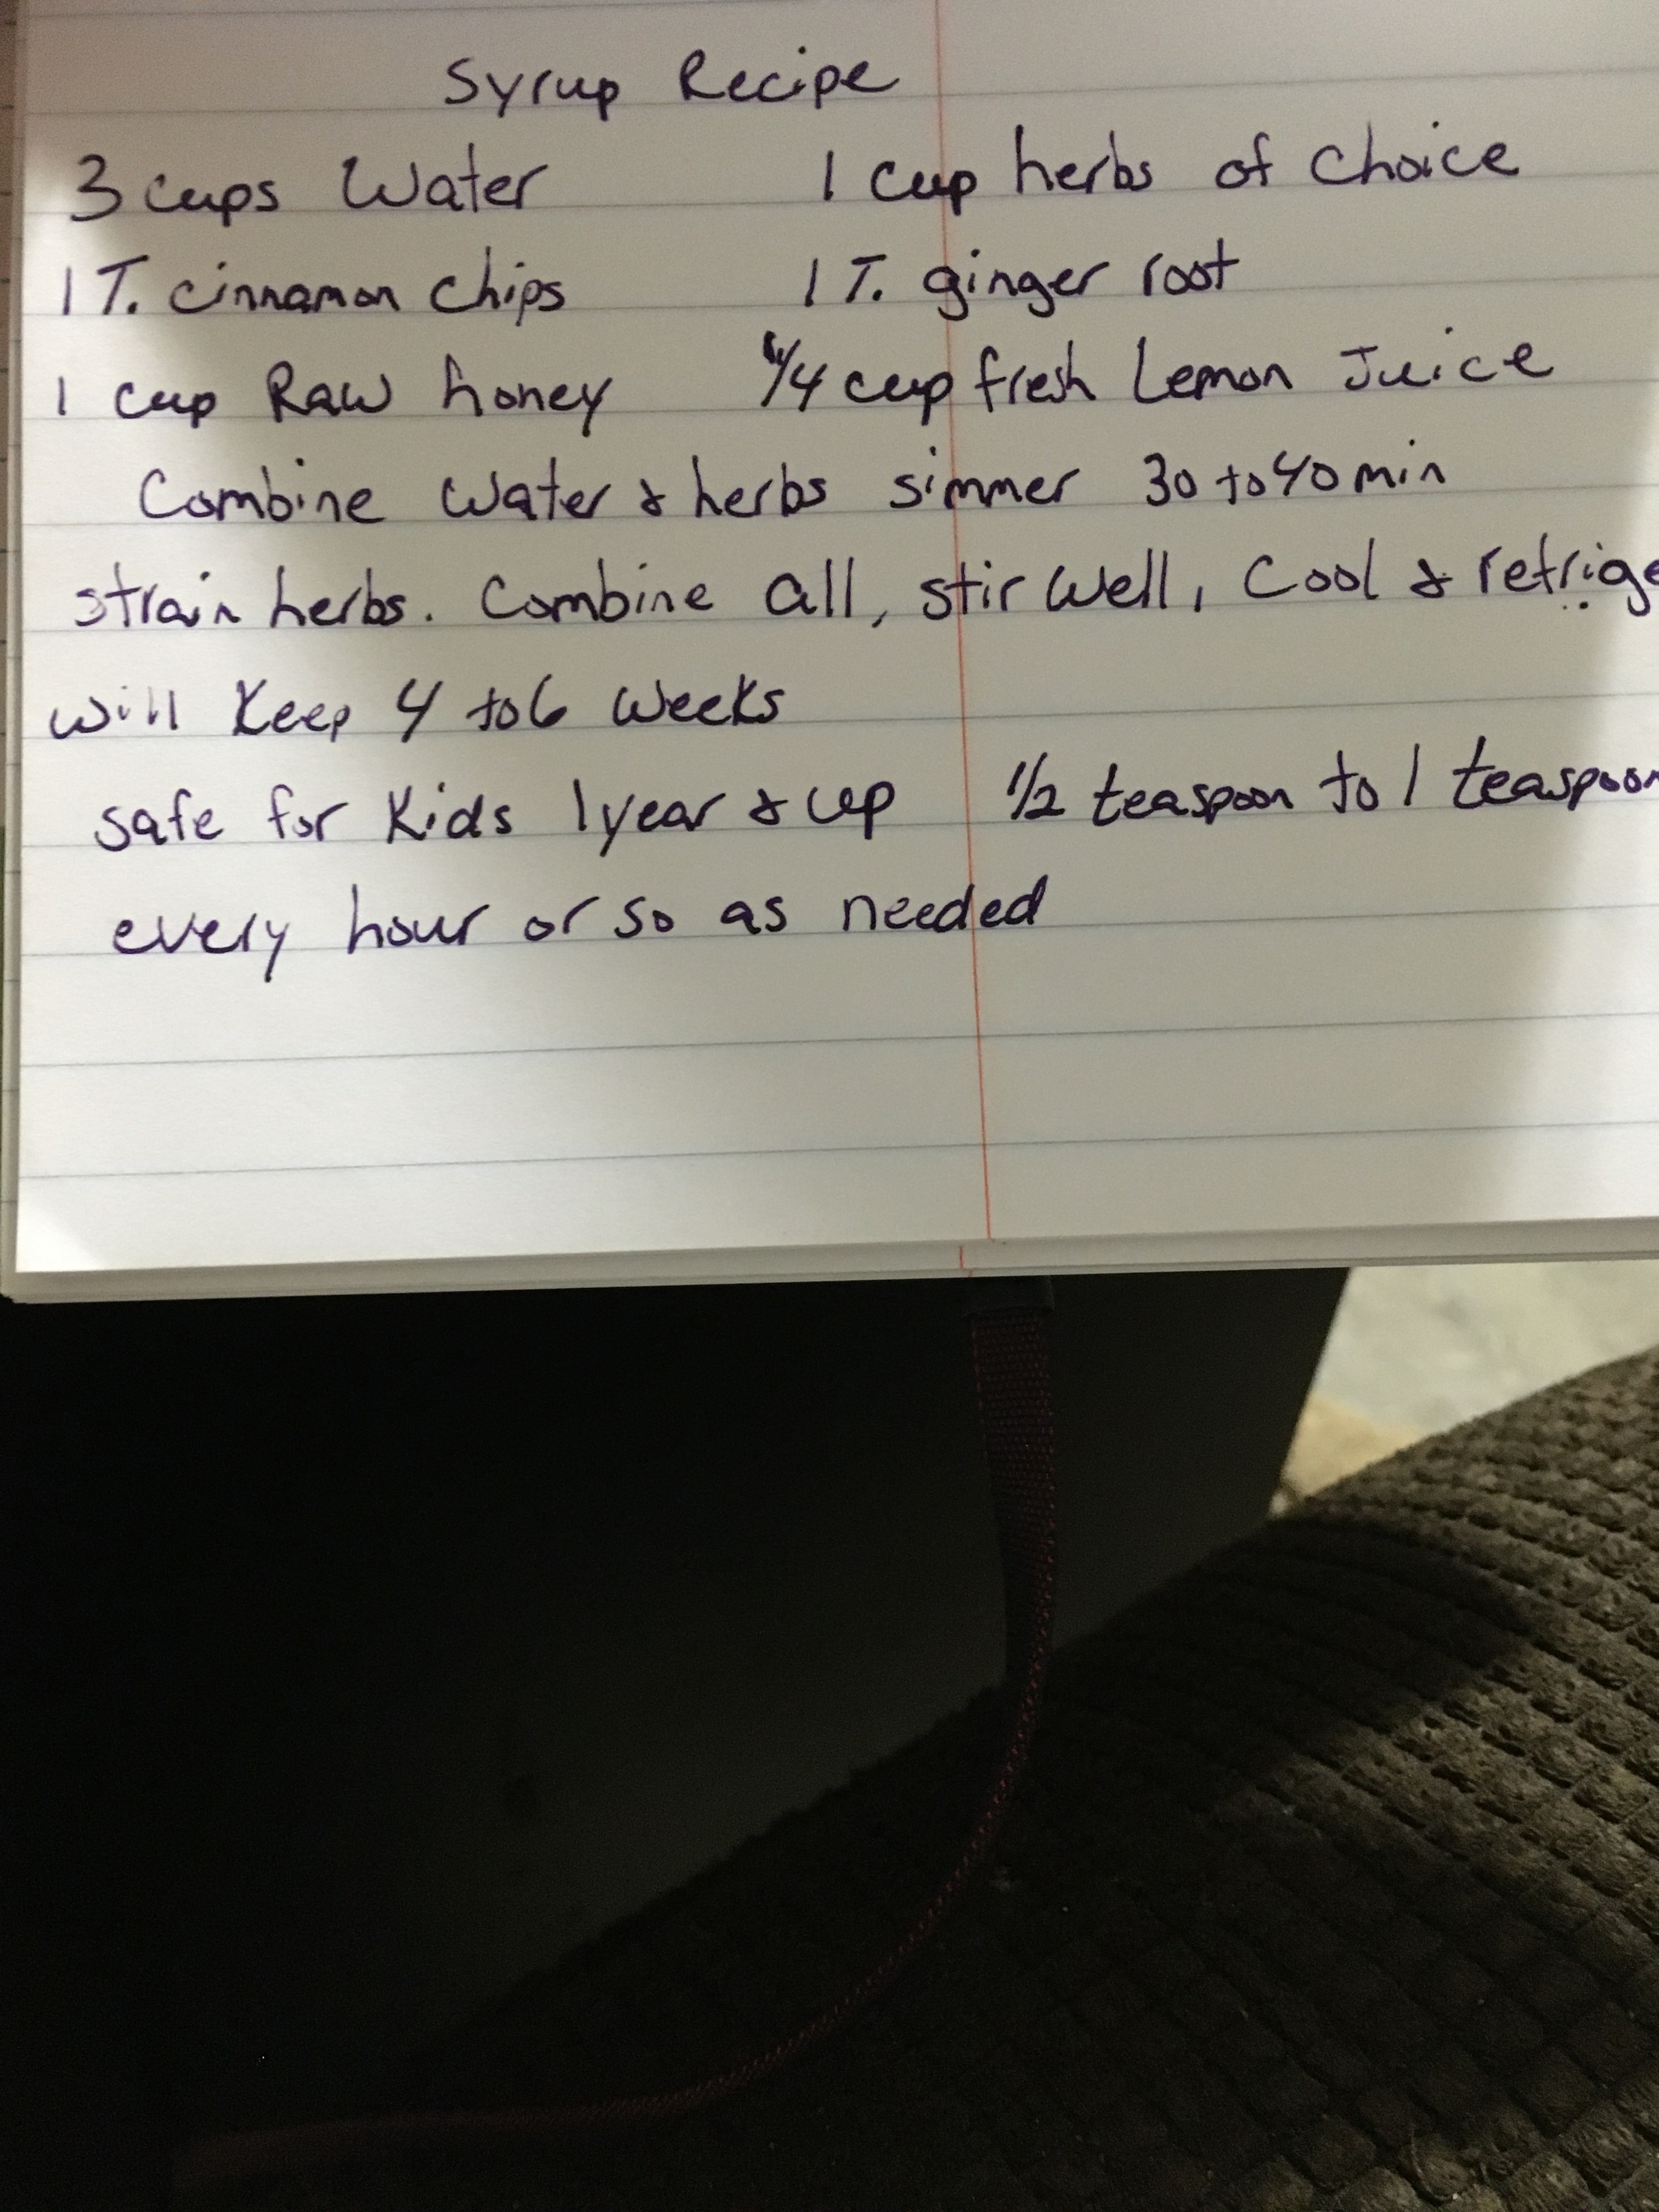 Syrup Recipe
3 cups Water 1 cup herbs of choice
1 T. cinnamon chips 1 T. ginger root
1 cup Raw honey 1/4 cup fresh Lemon Juice
Combine Water & herbs simmer 30 to 40 min
strain herbs. Combine all, stir well, Cool & refrige
will Keep 4 to 6 weeks
safe for Kids 1 year & up 1/2 teaspoon to 1 teaspoon
every hour or so as needed